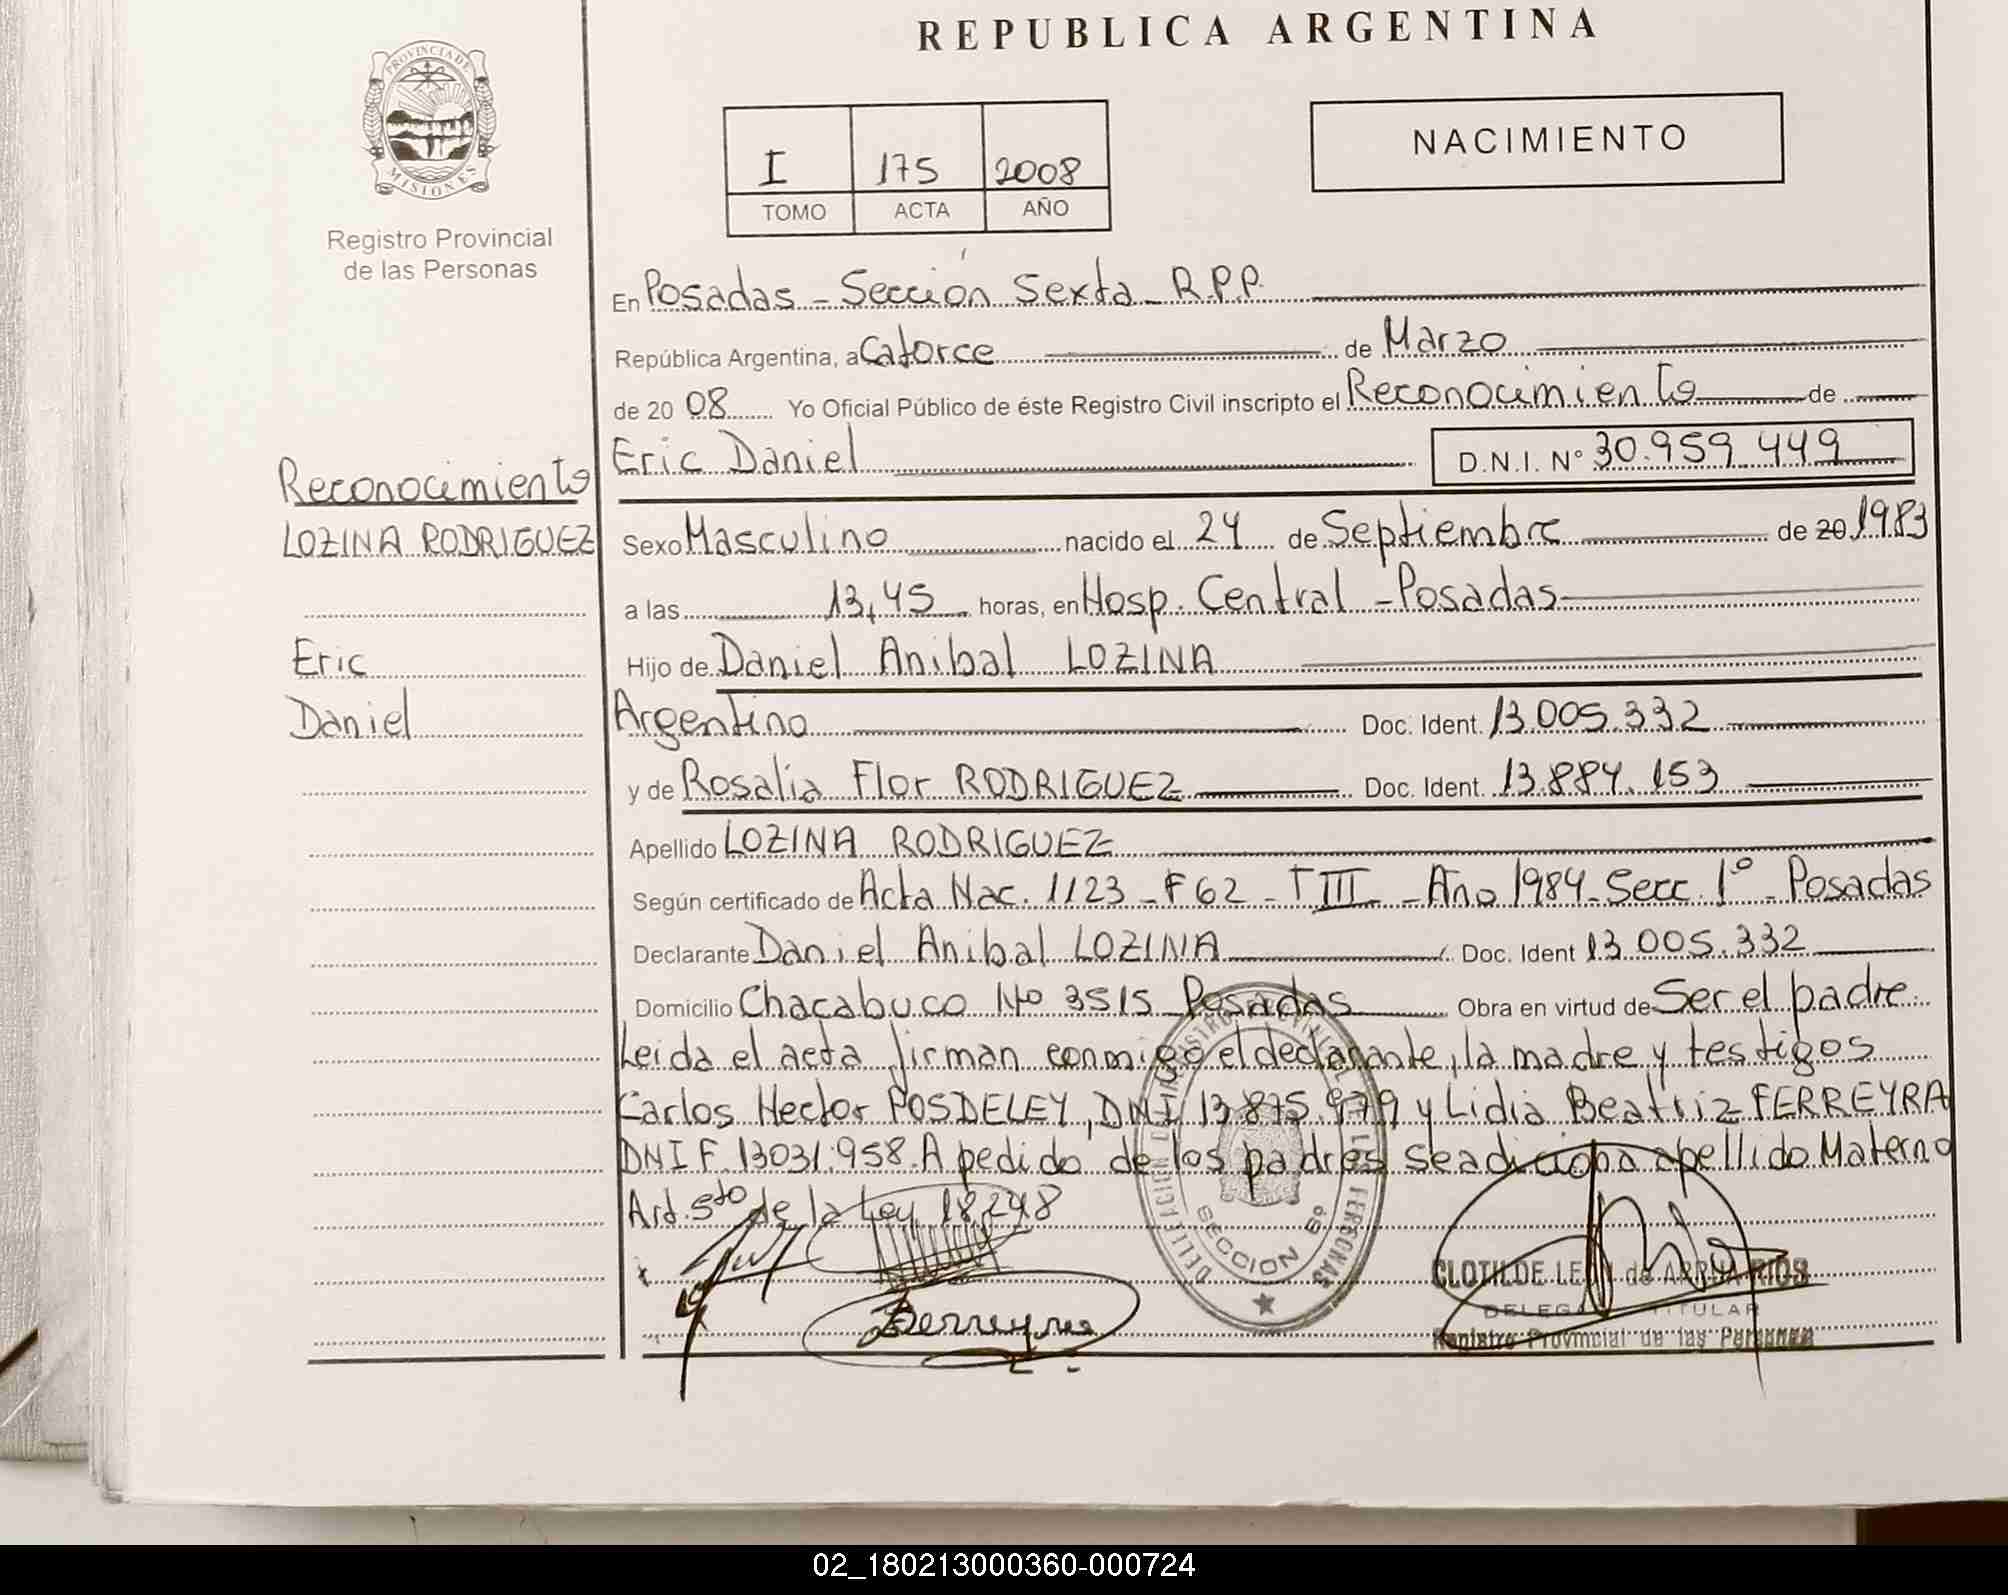 REPUBLICA ARGENTINA
PROVINCIA DE
MISIONES
Registro Provincial
de las Personas
I 175 2008
TOMO ACTA AÑO
NACIMIENTO
En Posadas - Sección Sexta - R.P.P.
República Argentina, a Catorce de Marzo
de 20 08 Yo Oficial Público de éste Registro Civil inscripto el Reconocimiento de
Eric Daniel D.N.I. Nº 30.959.449
Reconocimiento
LOZINA RODRIGUEZ
Eric
Daniel
Sexo Masculino nacido el 24 de Septiembre de 20 1983
a las 13,45 horas, en Hosp. Central - Posadas
Hijo de Daniel Anibal LOZINA
Argentino Doc. Ident. 13.005.332
y de Rosalia Flor RODRIGUEZ Doc. Ident. 13.884.153
Apellido LOZINA RODRIGUEZ
Según certificado de Acta Nac. 1123 - F 62 - T III - Año 1984 - Secc. 1º - Posadas
Declarante Daniel Anibal LOZINA Doc. Ident 13.005.332
Domicilio Chacabuco Nº 3515 Posadas Obra en virtud de Ser el padre
Leida el acta firman conmigo el declarante, la madre y testigos
Carlos Hector POSDELEY, DNI 13.875.979 y Lidia Beatriz FERREYRA
DNI F. 13031.958. A pedido de los padres se adiciona apellido Materno
Art. 5to de la Ley 18.248
SECCION 6º
CLOTILDE de ARRUA RIOS
DELEGADA TITULAR
Registro Provincial de las Personas
Ferreyra
02_180213000360-000724